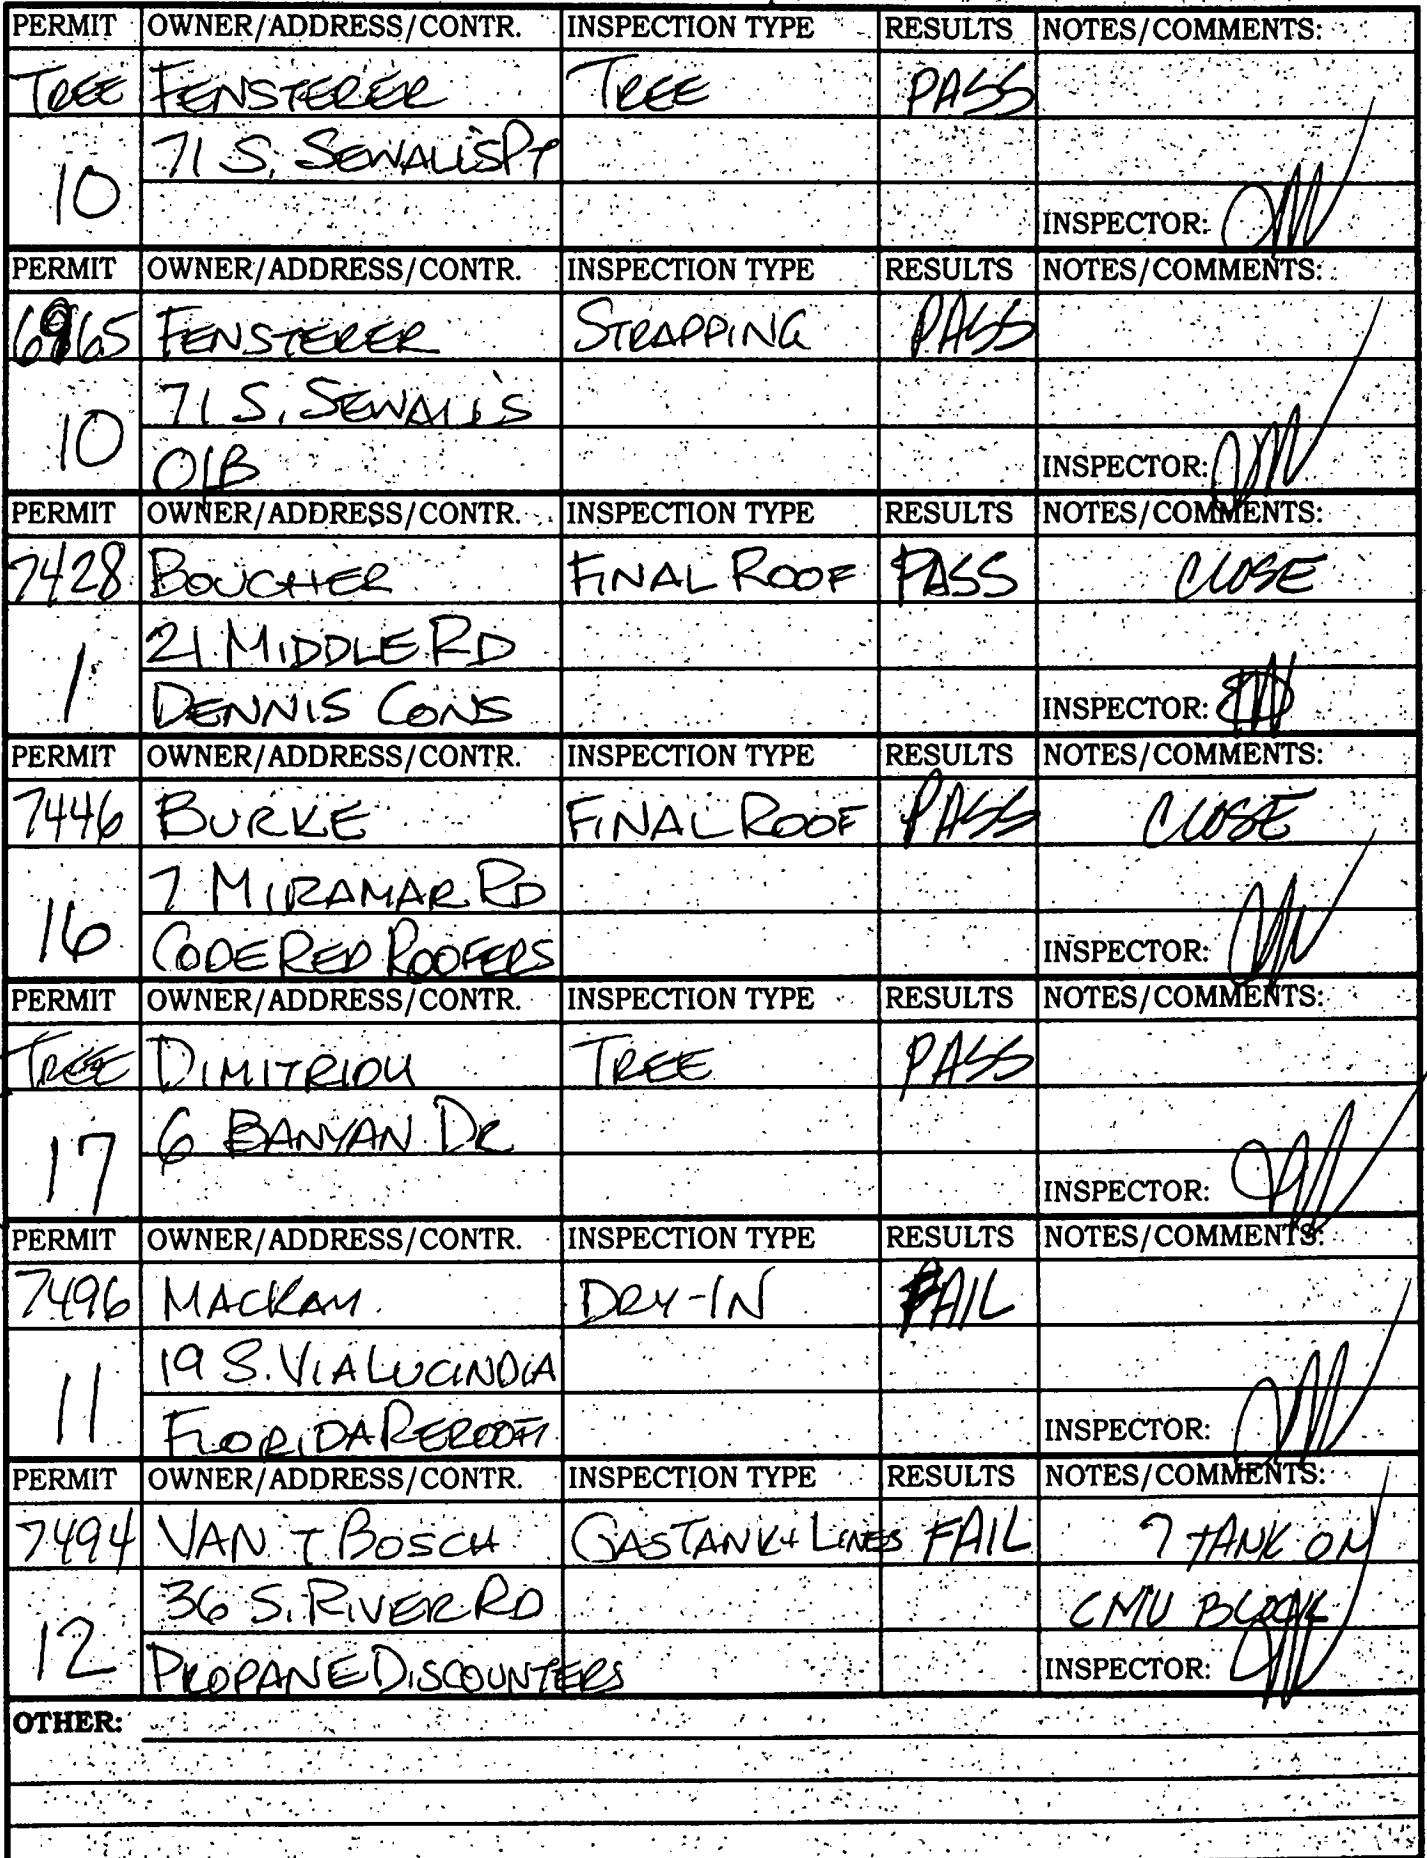 PERMIT OWNER/ADDRESS/CONTR. INSPECTION TYPE RESULTS NOTES/COMMENTS:
TREE FENSTERER TREE PASS
71 S. SEWALL'S PT
10 INSPECTOR:
PERMIT OWNER/ADDRESS/CONTR. INSPECTION TYPE RESULTS NOTES/COMMENTS:
6965 FENSTERER STRAPPING PASS
71 S. SEWALL'S
10 O/B INSPECTOR:
PERMIT OWNER/ADDRESS/CONTR. INSPECTION TYPE RESULTS NOTES/COMMENTS:
7428 BOUCHER FINAL ROOF PASS CLOSE
21 MIDDLE RD
1 DENNIS CONS INSPECTOR:
PERMIT OWNER/ADDRESS/CONTR. INSPECTION TYPE RESULTS NOTES/COMMENTS:
7446 BURKE FINAL ROOF PASS CLOSE
7 MIRAMAR RD
16 CODE RED ROOFERS INSPECTOR:
PERMIT OWNER/ADDRESS/CONTR. INSPECTION TYPE RESULTS NOTES/COMMENTS:
TREE DIMITRIOU TREE PASS
6 BANYAN DR
17 INSPECTOR:
PERMIT OWNER/ADDRESS/CONTR. INSPECTION TYPE RESULTS NOTES/COMMENTS:
7496 MACKAY DRY-IN FAIL
19 S. VIA LUCINDIA
11 FLORIDA REROOF INSPECTOR:
PERMIT OWNER/ADDRESS/CONTR. INSPECTION TYPE RESULTS NOTES/COMMENTS:
7494 VAN T BOSCH GAS TANK + LINES FAIL ? TANK ON
36 S. RIVER RD CMU BLOCK
12 PROPANE DISCOUNTERS INSPECTOR:
OTHER: